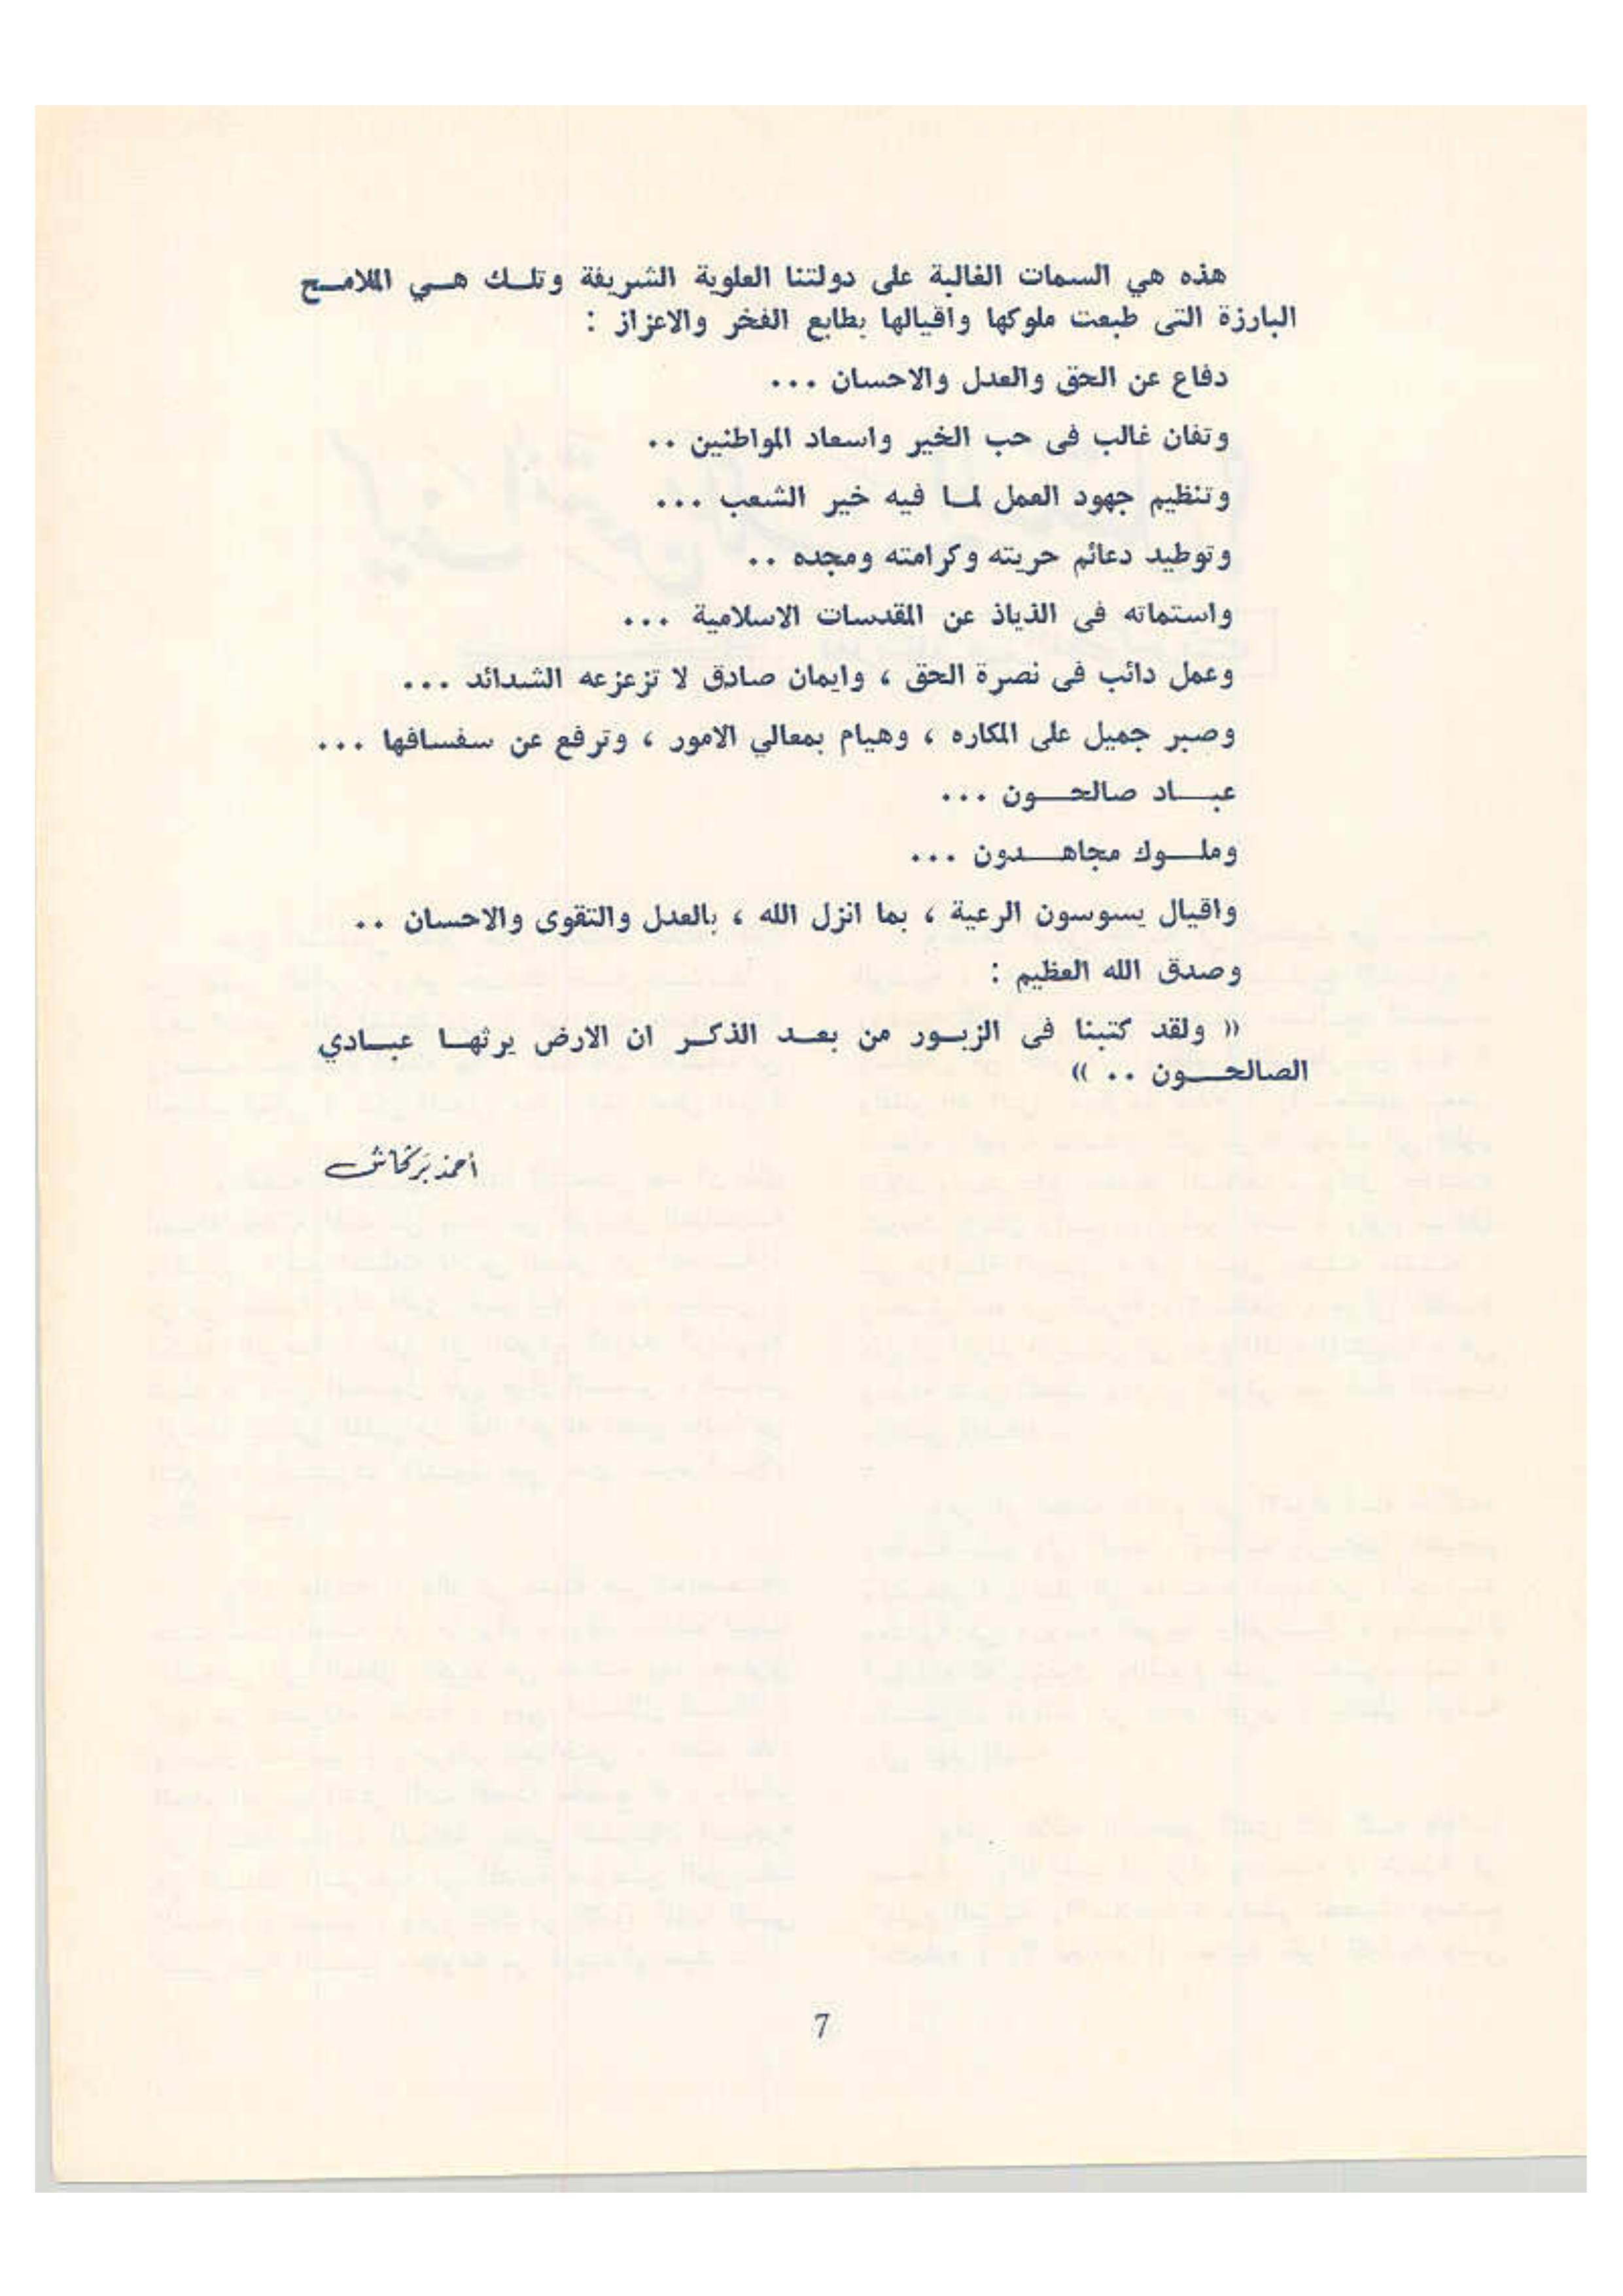 هذه هي السمات الغالبة على دولتنا العلوية الشريفة وتلك هي الملامح
البارزة التى طبعت ملوكها واقيالها بطابع الفخر والاعزاز :
دفاع عن الحق والعدل والاحسان ...
وتفان غالب فى حب الخير واسعاد المواطنين ..
وتنظيم جهود العمل لما فيه خير الشعب ...
وتوطيد دعائم حريته وكرامته ومجده ..
واستماته فى الذياذ عن المقدسات الاسلامية ...
وعمل دائب فى نصرة الحق ، وايمان صادق لا تزعزعه الشدائد ...
وصبر جميل على المكاره ، وهيام بمعالي الامور ، وترفع عن سفسافها ...
عباد صالحون ...
وملوك مجاهدون ...
واقيال يسوسون الرعية ، بما انزل الله ، بالعدل والتقوى والاحسان ..
وصدق الله العظيم :
« ولقد كتبنا فى الزبور من بعد الذكر ان الارض يرثها عبادي
الصالحون .. »
أحمد بَركاش
7